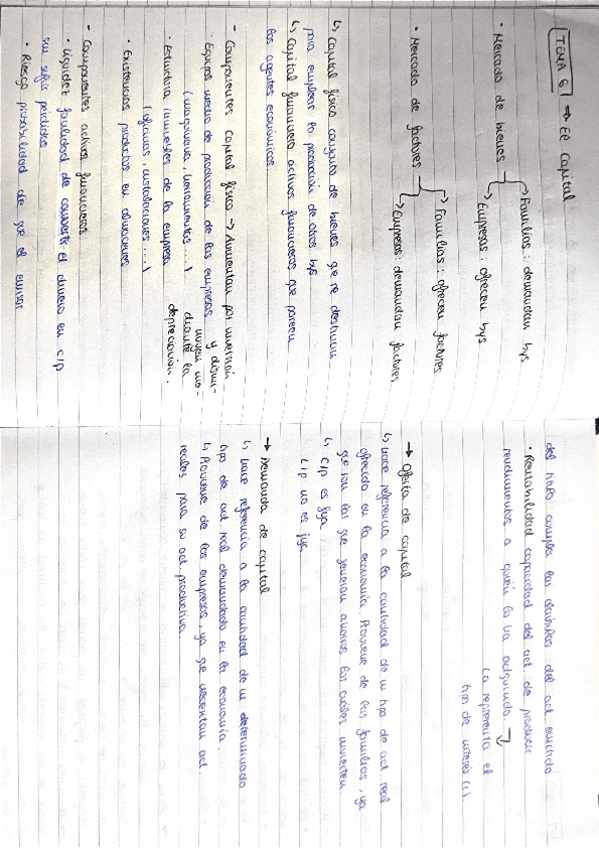 TEMA 6 → El capital
• Mercado de bienes → Familias: demandan bys
→ Empresas: ofrecen bys
• Mercado de factores → Familias: ofrecen factores
→ Empresas: demandan factores
↳ Capital físico conjunto de bienes que se destinan
para emplear la producción de otros bys
↳ Capital financiero activos financieros que poseen
los agentes económicos
- Componentes capital físico → Aumentan por inversión
• Equipos medio de producción de las empresas y dismi-
(maquinaria, herramientas...) nuyen me-
diante la
• Estructura inmuebles de la empresa depreciación.
(oficinas, instalaciones...)
• Existencias productos en almacenes
- Componentes activos financieros
• Liquidez facilidad de convertir el dinero en c/p
sin sufrir pérdidas
• Riesgo probabilidad de que el emisor
del título cumpla las cláusulas del act emitido
• Rentabilidad capacidad del act de producir
rendimientos a quién lo ha adquirido. →
La representa el
tipo de interés (i)
→ Oferta de capital
↳ hace referencia a la cantidad de un tipo de act real
ofrecido en la economía. Proviene de las familias, ya
que son las que generan ahorros los cuáles invierten
↳ C/p es fija
L/p no es fija
→ Demanda de capital
↳ hace referencia a la cantidad de un determinado
tipo de act real demandado en la economía.
↳ Proviene de las empresas, ya que necesitan act.
reales para su act productiva.